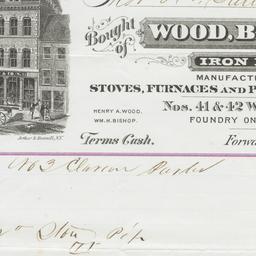 Bought of WOOD, B
IRON
MANUFACT
STOVES, FURNACES and P
HENRY A. WOOD.
WM. H. BISHOP.
Nos. 41 & 42 W
FOUNDRY ON
Terms Cash. Forwa
Arthur & Bonnell, N.Y.
No 3 Clarion Parlor
Stove Pip